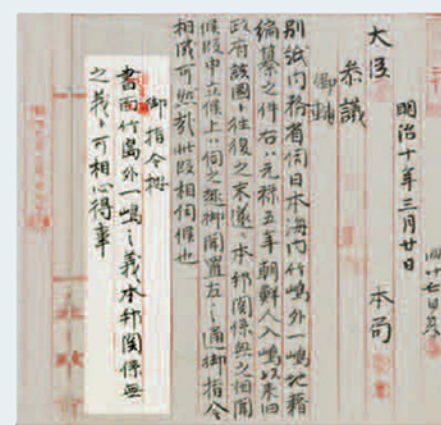 明治十年三月廿日
大臣
本局
参議
卿輔
別紙内務省伺日本海内竹嶋外一嶋地籍
編纂之件右ハ元禄五年朝鮮人入嶋以来旧
政府該國ト往復之末遂ニ本邦関係無之相聞
候段申立候上ハ伺之趣御聞置左之通御指令
相成可然哉此段相伺候也
御指令按
書面竹島外一嶋之義本邦関係無
之義ト可相心得事